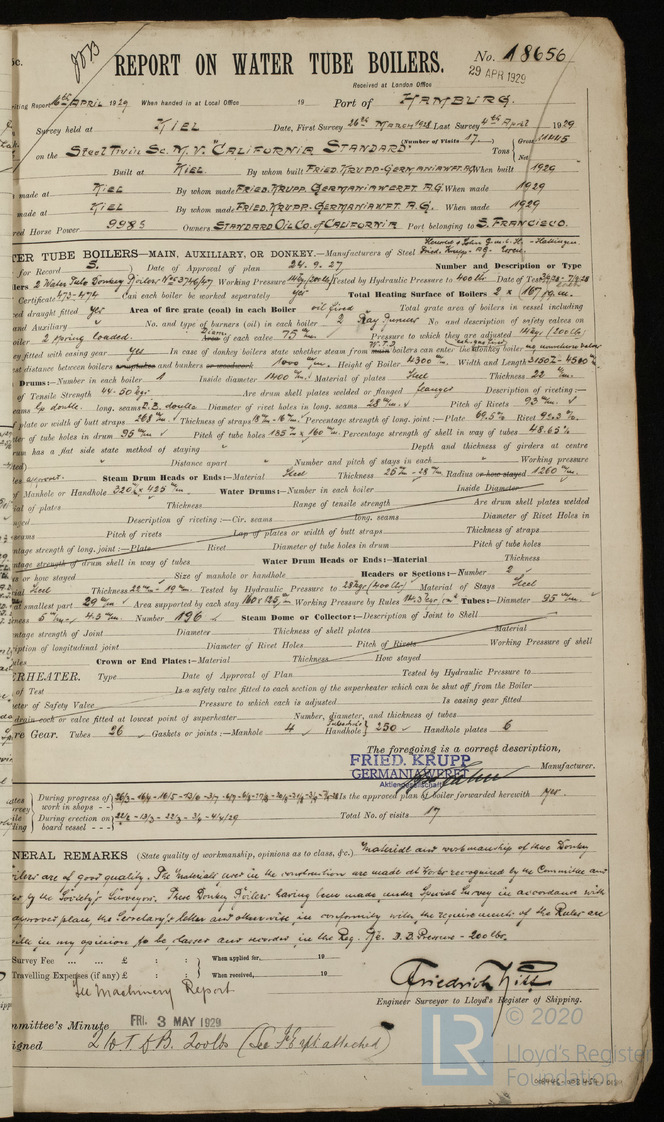 REPORT ON WATER TUBE BOILERS.
No. 18656
29 APR 1929
Received at London Office
iting Report 16th APRIL 1929 When handed in at Local Office 19 Port of HAMBURG.
Survey held at KIEL Date, First Survey 26th March 1928 Last Survey 4th April 1929
(Number of Visits 17.)
on the Steel Twin Sc. M.V. "CALIFORNIA STANDARD" Tons Gross 11445 Net
Built at KIEL By whom built FRIED. KRUPP-GERMANIAWFT. A.G. When built 1929
made at KIEL By whom made FRIED. KRUPP GERMANIAWERFT A.G. When made 1929
made at KIEL By whom made FRIED. KRUPP-GERMANIAWFT A.G. When made 1929
red Horse Power 9985 Owners STANDARD OIL Co. of CALIFORNIA Port belonging to S. FRANCISCO.
TER TUBE BOILERS—MAIN, AUXILIARY, OR DONKEY.—Manufacturers of Steel
for Record S. Date of Approval of plan 24.9.27 Number and Description or Type
lers 2 Water Tube Donkey Boilers Working Pressure Tested by Hydraulic Pressure to 400 lbs Date of Test
Certificate 473-474 Can each boiler be worked separately yes Total Heating Surface of Boilers 2 x 167 sq.m.
ed draught fitted yes Area of fire grate (coal) in each Boiler oil fired Total grate area of boilers in vessel including
and Auxiliary No. and type of burners (oil) in each boiler 2 No. and description of safety valves on
boiler 2 spring loaded. Area of each valve 75 m/m Pressure to which they are adjusted 14 kg/(200 lbs)
ey fitted with easing gear yes In case of donkey boilers state whether steam from main boilers can enter the donkey boiler
st distance between boilers and bunkers or woodwork 1000 m/m. Height of Boiler 4300 Width and Length 3150 - 4500
Drums:—Number in each boiler 1 Inside diameter 1400 m/m. Material of plates Steel Thickness 22 m/m.
of Tensile Strength 44-50 kgs. Are drum shell plates welded or flanged flanged Description of riveting:—
double. long. seams double Diameter of rivet holes in long. seams 28 m/m Pitch of Rivets 93 m/m.
of plate or width of butt straps 268 m/m. Thickness of straps Percentage strength of long. joint:—Plate 69.5% Rivet
ter of tube holes in drum 95 m/m Pitch of tube holes 135 m/m x 160 m/m. Percentage strength of shell in way of tubes 48.65%
rum has a flat side state method of staying Depth and thickness of girders at centre
Distance apart Number and pitch of stays in each Working pressure
Steam Drum Heads or Ends:—Material Steel Thickness 25 m/m - 28 m/m Radius or how stayed 1260 m/m.
of Manhole or Handhole 320 x 425 m/m. Water Drums:—Number in each boiler Inside Diameter
ial of plates Thickness Range of tensile strength Are drum shell plates welded
Description of riveting:—Cir. seams long. seams Diameter of Rivet Holes in
Pitch of rivets Lap of plates or width of butt straps Thickness of straps
ntage strength of long. joint:—Plate Rivet Diameter of tube holes in drum Pitch of tube holes
ntage strength of drum shell in way of tubes Water Drum Heads or Ends:—Material Thickness
s or how stayed Size of manhole or handhole Headers or Sections:—Number 2
ial Steel Thickness 22 m/m - 19 m/m. Tested by Hydraulic Pressure to 28 kgs (400 lbs) Material of Stays Steel
at smallest part 29 m/m Area supported by each stay Working Pressure by Rules Tubes:—Diameter 95 m/m.
ness 5 m/m 4.5 m/m. Number 196 Steam Dome or Collector:—Description of Joint to Shell
ntage strength of Joint Diameter Thickness of shell plates Material
ription of longitudinal joint Diameter of Rivet Holes Pitch of Rivets Working Pressure of shell
ules Crown or End Plates:—Material Thickness How stayed
ERHEATER. Type Date of Approval of Plan Tested by Hydraulic Pressure to
of Test Is a safety valve fitted to each section of the superheater which can be shut off from the Boiler
ter of Safety Valve Pressure to which each is adjusted Is easing gear fitted
drain cock or valve fitted at lowest point of superheater Number, diameter, and thickness of tubes
re Gear. Tubes 26 Gaskets or joints:—Manhole 4 Handhole 250 Handhole plates 6
The foregoing is a correct description,
FRIED. KRUPP
GERMANIAWERFT
Aktiengesellschaft
Manufacturer.
During progress of work in shops - - Is the approved plan of boiler forwarded herewith yes.
During erection on board vessel - - 22/2 - 13/3 - 22/3 - 3/4 - 4/4/29 Total No. of visits 17
NERAL REMARKS (State quality of workmanship, opinions as to class, &c.) Material and workmanship of these Donkey
oilers are of good quality. The materials used in the construction are made at Works recognised by the Committee and
by the Society's Surveyors. These Donkey Boilers having been made under Special Survey in accordance with
approved plan, the Secretary's letter and otherwise in conformity with the requirements of the Rules are
in my opinion to be classed and recorded in the Reg. D.B. Pressure - 200 lbs.
Survey Fee ... ... £ : : When applied for, 19
Travelling Expenses (if any) £ : : When received, 19
See Machinery Report
Engineer Surveyor to Lloyd's Register of Shipping.
mmittee's Minute FRI. 3 MAY 1929
igned 2 W T D B. 200 lbs (See attached)
LR
© 2020
Lloyd's Register
Foundation